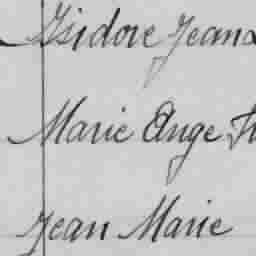 Isidore Jean
Marie Ange
Jean Marie